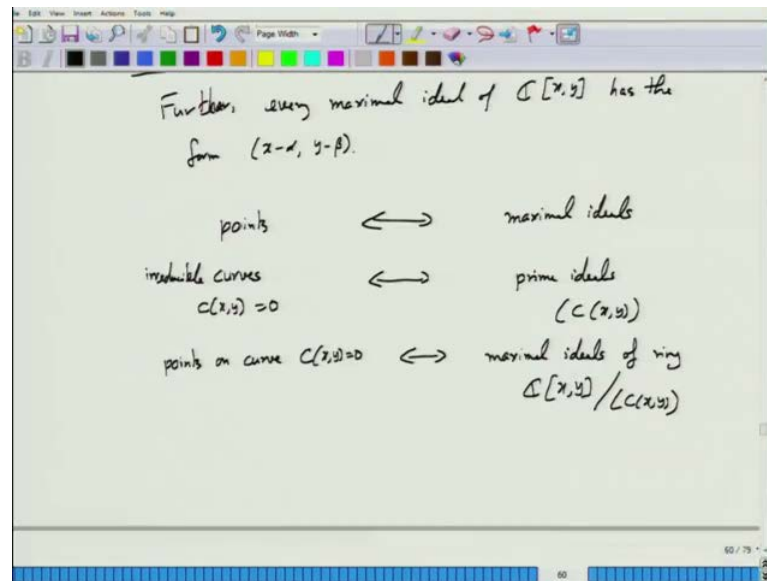 Edit View Insert Actions Tools Help
Page Width
Further, every maximal ideal of ℂ[x,y] has the
form (x-α, y-β).
points ⟺ maximal ideals
irreducible curves ⟺ prime ideals
C(x,y) = 0 (C(x,y))
points on curve C(x,y)=0 ⟺ maximal ideals of ring
ℂ[x,y]/(C(x,y))
60 / 79
60